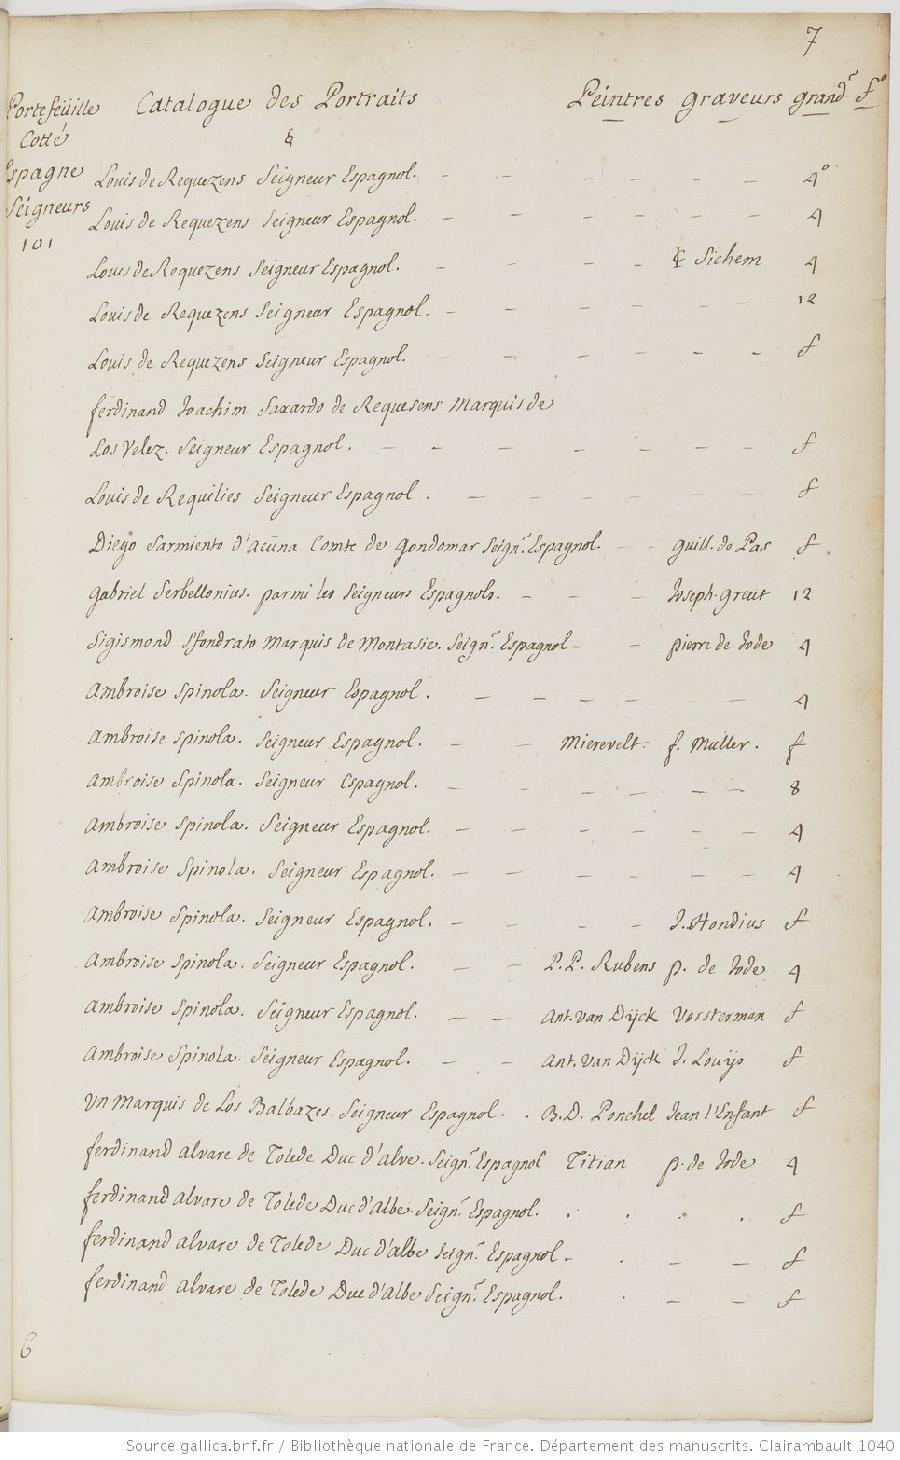 7
Portefeüille Catalogue des Portraits Peintres graveurs grandr fo
Cotté &
Espagne
Seigneurs
101
Louis de Requezens Seigneur Espagnol. - - - - - 4o
Louis de Requezens Seigneur Espagnol. - - - - - - 4
Louis de Requezens Seigneur Espagnol. - - - - Sichem 4
Louis de Requezens Seigneur Espagnol. - - - - - - 12
Louis de Requezens Seigneur Espagnol. - - - - - f
ferdinand Joachim Faxardo de Requesens Marquis de
Los Velez. Seigneur Espagnol. - - - - - - f
Louis de Requilies Seigneur Espagnol. - - - - - f
Diego Sarmiento d'acüna Comte de gondomar Seignr. Espagnol. - - guill. de Pas f
gabriel Serbellonius. parmi les Seigneurs Espagnols. - - - Joseph. greut 12
Sigismond Sfondrato Marquis de Montasie. Seignr. Espagnol - - pierre de Jode 4
Ambroise Spinola. Seigneur Espagnol. - - - - - - 4
Ambroise Spinola. Seigneur Espagnol. - - Mierevelt. f. Muller. f
Ambroise Spinola. Seigneur Espagnol. - - - - - - 8
Ambroise Spinola. Seigneur Espagnol. - - - - - - 4
Ambroise Spinola. Seigneur Espagnol. - - - - - - 4
Ambroise Spinola. Seigneur Espagnol. - - - - J. Hondius f
Ambroise Spinola. Seigneur Espagnol. - - P.P. Rubens p. de Jode 4
Ambroise Spinola. Seigneur Espagnol. - - Ant. van Dijck Vorsterman f
Ambroise Spinola. Seigneur Espagnol. - - Ant. van Dijck J. Louijs f
Un Marquis de Los Balbazes. Seigneur Espagnol. . B.D. Ponchel Jean l'Enfant f
ferdinand alvare de Tolede Duc d'alve. Seignr. Espagnol Titian p. de Jode 4
ferdinand alvare de Tolede Duc d'albe Seignr. Espagnol. . . . . f
ferdinand alvare de Tolede Duc d'albe Seignr. Espagnol - . - - f
ferdinand alvare de Tolede Duc d'albe Seignr. Espagnol. . - - f
6
Source gallica.bnf.fr / Bibliothèque nationale de France. Département des manuscrits. Clairambault 1040